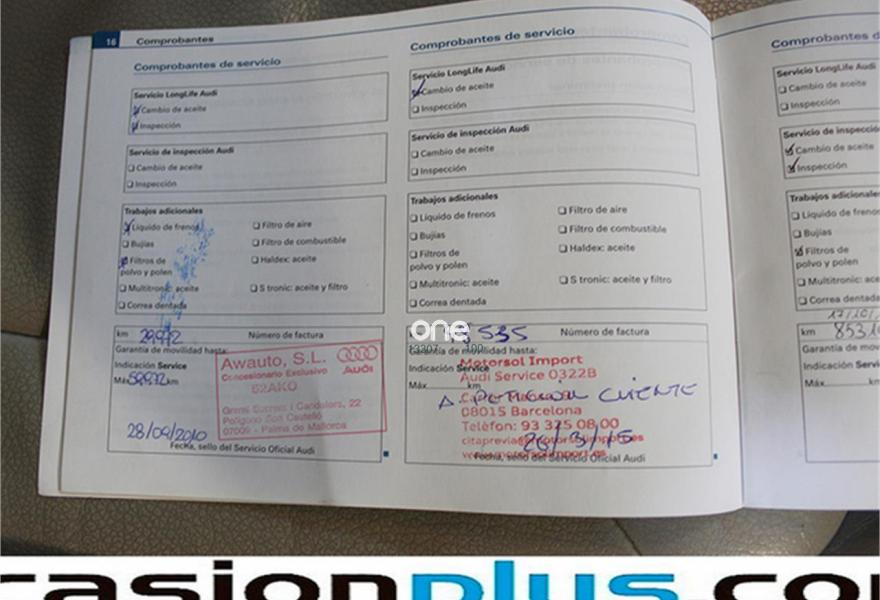 16
Comprobantes
Comprobantes de servicio
Servicio LongLife Audi
Cambio de aceite
Inspección
Servicio de inspección Audi
Cambio de aceite
Inspección
Trabajos adicionales
Líquido de frenos
Filtro de aire
Bujías
Filtro de combustible
Filtros de
polvo y polen
Haldex: aceite
Multitronic: aceite
S tronic: aceite y filtro
Correa dentada
km
Número de factura
Garantía de movilidad hasta:
Indicación Service
Máx. km
Awauto, S.L.
Concesionario Exclusivo
Audi
Gremi Sucrers i Candelers, 22
Polígono Son Castelló
07009 - Palma de Mallorca
28/09/2010
Fecha, sello del Servicio Oficial Audi
Comprobantes de servicio
Servicio LongLife Audi
Cambio de aceite
Inspección
Servicio de inspección Audi
Cambio de aceite
Inspección
Trabajos adicionales
Líquido de frenos
Filtro de aire
Bujías
Filtro de combustible
Filtros de
polvo y polen
Haldex: aceite
Multitronic: aceite
S tronic: aceite y filtro
Correa dentada
one
535
Número de factura
13307
100
Garantía de movilidad hasta:
Indicación Service
Máx. km
Motorsol Import
Audi Service 0322B
A PETICION CLIENTE
08015 Barcelona
Telèfon: 93 325 08 00
citaprevia@motorsolimport.es
www.motorsolimport.es
26/3/15
Fecha, sello del Servicio Oficial Audi
Comprobantes d
Servicio LongLife Audi
Cambio de aceite
Inspección
Servicio de inspecció
Cambio de aceite
Inspección
Trabajos adicionale
Líquido de freno
Bujías
Filtros de
polvo y polen
Multitronic: aceit
Correa dentada
km 8531
Garantía de mov
Indicación Servi
Máx.
casionplus.co